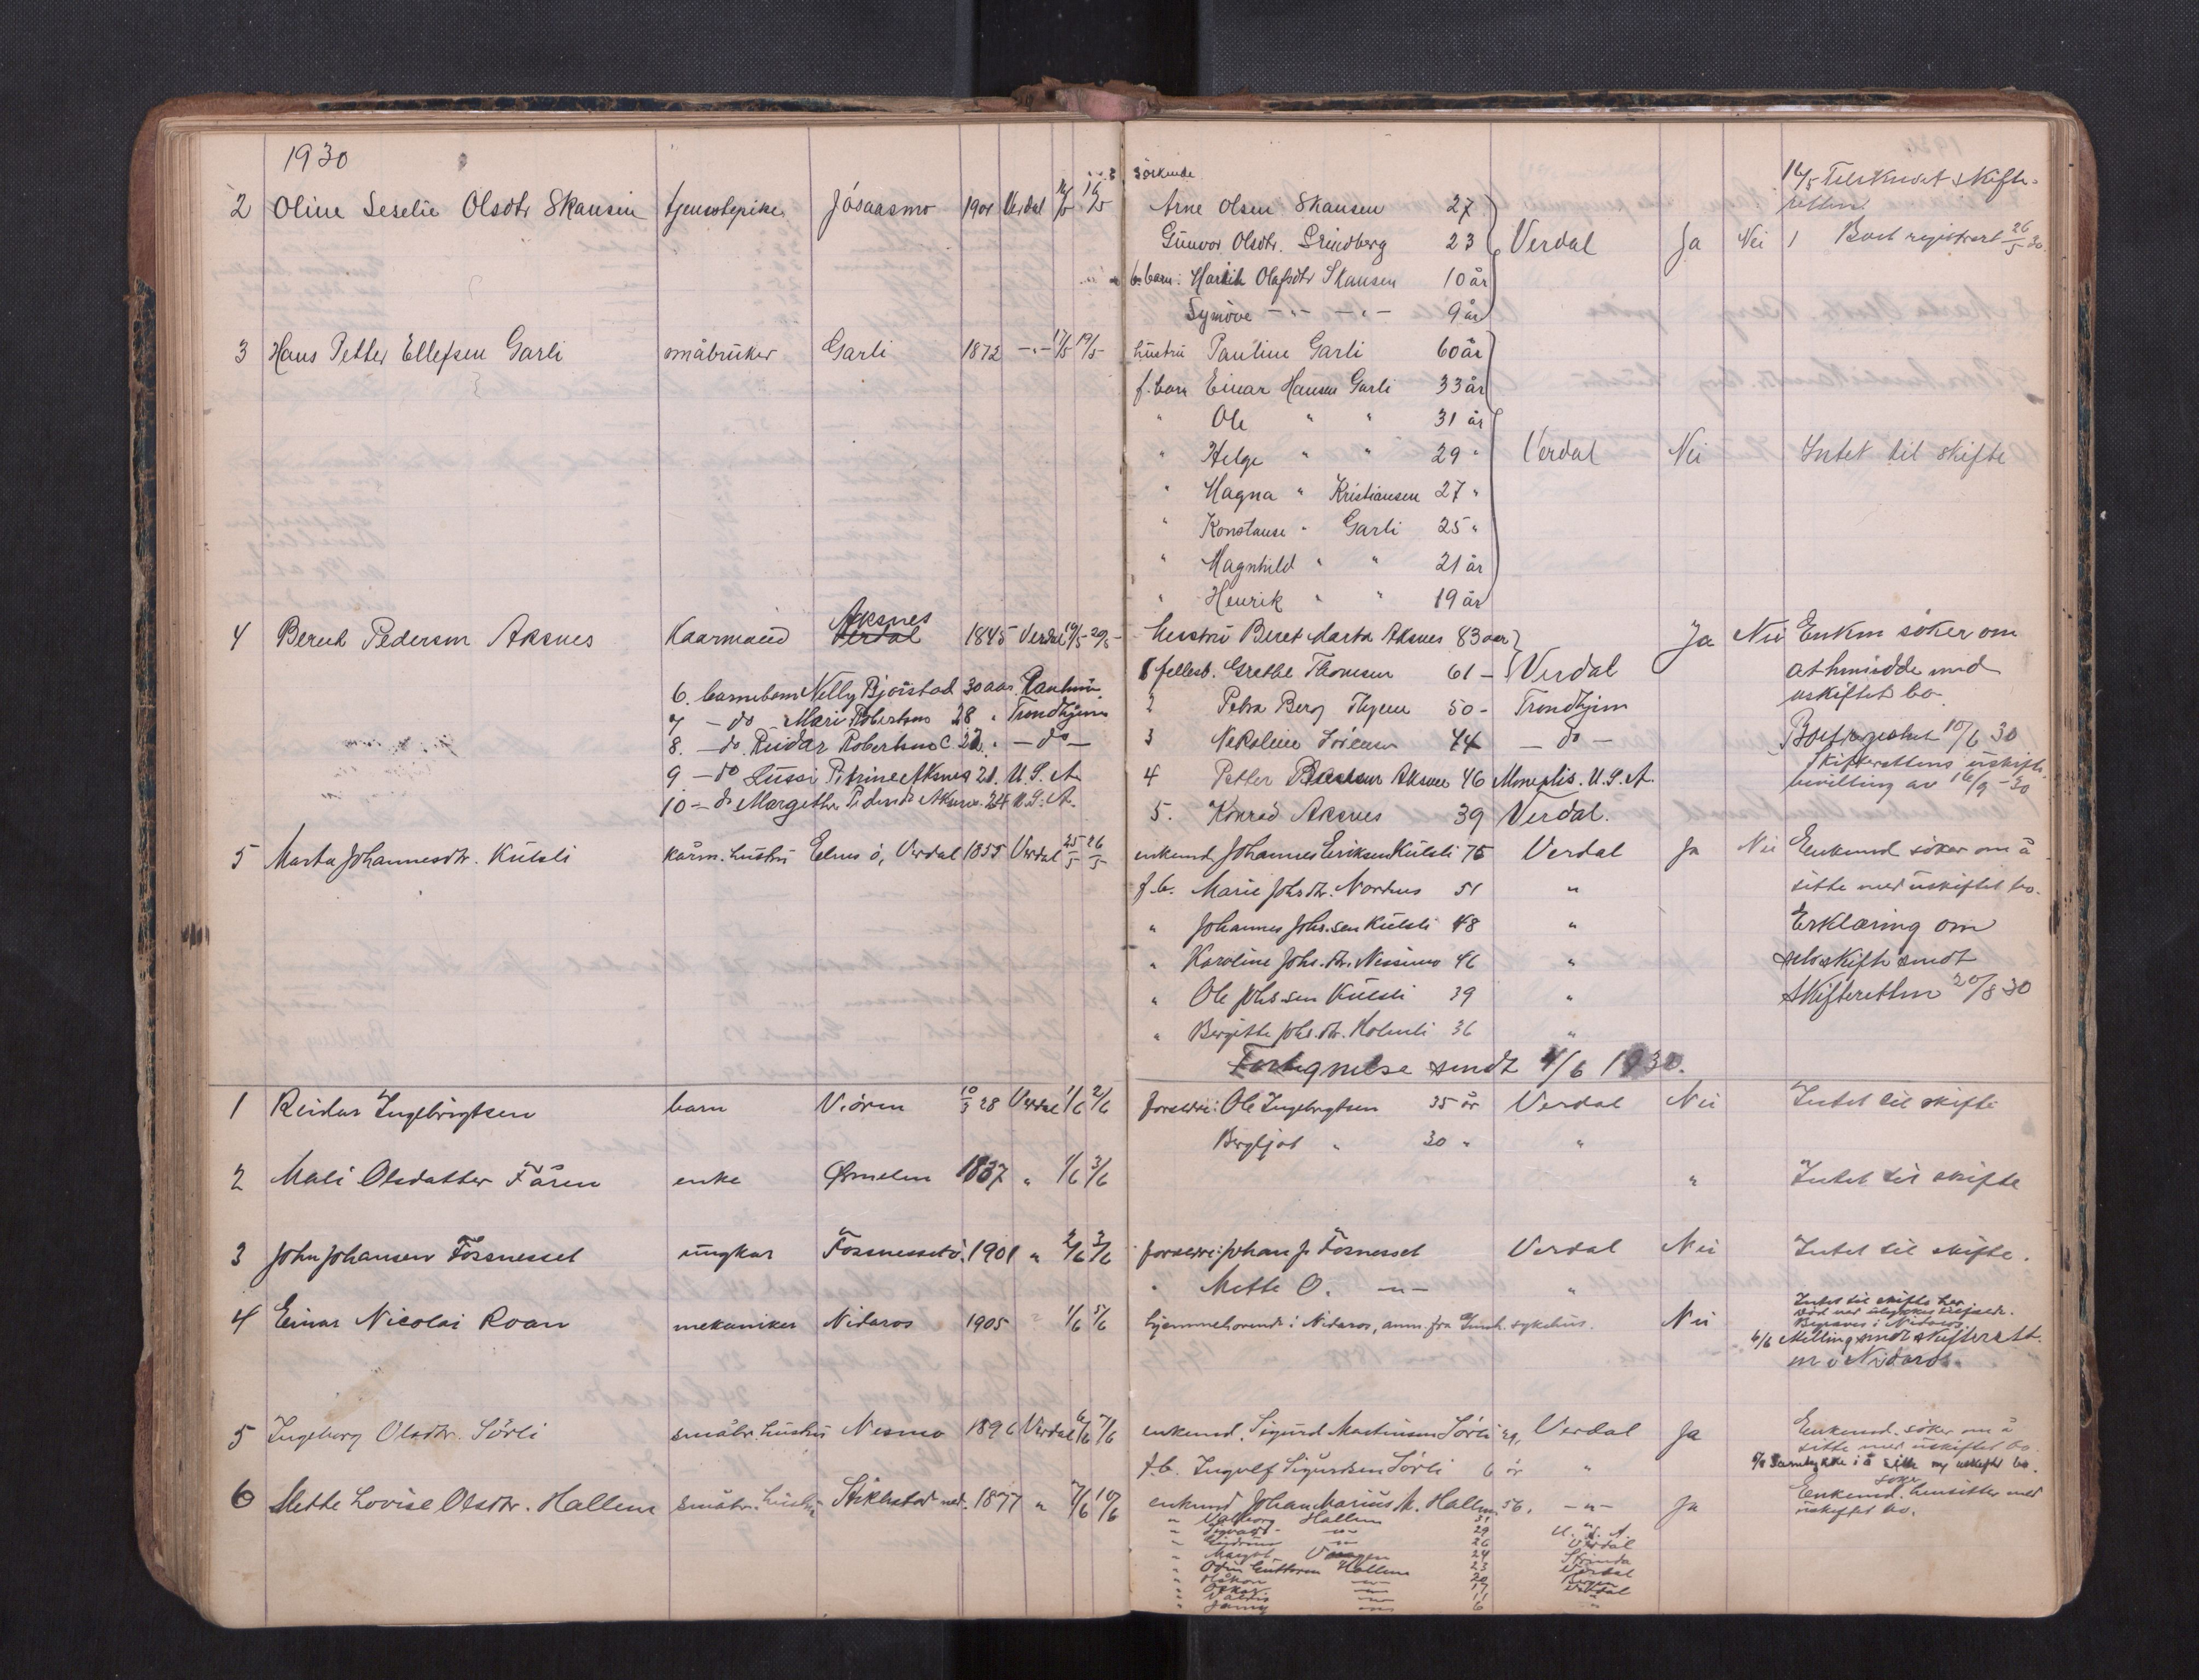 1930
2 Oline Teselie Olsdtr Skansen tjenestepike Jösaasmo 1901 Verdal 14/5 16/5 Söskende Arne Olsen Skansen 27 16/5 Tilskrevet skifte-
retten.
Gunvor Olsdtr. Grindberg 23 Verdal Ja Nei 1 Boet registrert 26/5 30.
b. barn: Olafsdtr Skansen 10 år
Synöve -"- -"- 9 år
3 Hans Petter Ellefsen Garli småbruker Garli 1872 -"- 17/5 19/5 hustru Pauline Garli 60 år
f. barn Einar Hansen Garli 33 år
" Ole " " 31 år
" Helge " " 29 " Verdal Nei Intet til skifte
" Magna " Kristiansen 27 "
" Konstanse " Garli 25 "
" Magnhild " " 21 år
" Henrik " " 19 år
4 Bernt Pedersen Aksnes Kaarmand Aksnes Verdal 1845 Verdal 19/5 20/5 hustru Beret Marta Aksnes 83 aar Ja Nei Enken söker om
1 fellesb. Grethe Thomesen 61 - Verdal at hensidde med
uskiftet bo.
6. barnebarn Nelly Bjørstad 30 aar. Ranheim. 2 Petra Berg Thyem 50 - Trondhjem
7 - do - Mari Robertsen 28 " Trondhjem
8. - do. Reidar Robertsen C. 22. " - do - 3 Nekoline Sörensen 44 - do - Boet registret 10/6 30
9 - do Lussi Petrine Aksnes 21. U.S.A 4 Petter Aksnes 46 U.S.A. Skifterettens uskifte-
bevilling av 16/9 - 30
10 - do Margethe Aksnes. 24 U.S.A. 5. Konrad Aksnes 39 Verdal.
5 Marta Johannesdtr. Kulsli kårm. hustru Elnes ö, Verdal 1855 Verdal 25/5 26/5 enkemd Johannes Eriksen Kulsli 75 Verdal Ja Nei Enkemd söker om å
f. b. Marie Johs.dtr. Nordnes 51 " sitte med uskiftet bo.
" Johannes Johs.sen Kulsli 48 " Erklæring om
" Karoline Johs.dtr. Nessimo 46 " selvskifte sendt
" Ole Johs.sen Kulsli 39 " Skifteretten 20/8 30
" Bergitte Johs.dtr. Holmli 36 "
Fortegnelse sendt 4/6 1930.
1 Reidar Ingebrigtsen barn Vi-ören 10/3 28 Verdal 1/6 2/6 foreldre: Ole Ingebrigtsen 35 år Verdal Nei Intet til skifte
Bergljot " 30 " "
2 Mali Olsdatter Fåren enke Ørmelen 1837 " 1/6 3/6 " Intet til skifte
3 John Johansen Fosnesset ungkar Fosnesset ö. 1901 " 2/6 3/6 foreldre: Johan J. Fosnesset Verdal Nei Intet til skifte.
" Mette O. -"- "
4 Einar Nicolai Roan mekaniker Nidaros 1905 " 1/6 5/6 hjemmehörende i Nidaros, anm. fra Innh. sykehus. Nei Intet til skifte her.
Död ved ulykkestilfelle.
Begraves i Nidaros.
6/6 Melding sendt skifterett-
en i Nidaros.
5 Ingeborg Olsdtr. Sörli småbr. hustru Nesmo 1896 Verdal 6/6 7/6 enkemd. Sigurd Martinsen Sörli 29, Verdal Ja Enkemd. söker om å
sitte med uskiftet bo.
f. b. Ingolf Sigurdsen Sörli 6 år " Samtykke i å sitte m/ uskiftet bo.
6 Mette Lovise Olsdtr. Hallem småbr. hustru Stiklestad ned. 1877 " 7/6 10/6 enkemd Johan Marius A. Hallem 56, -"- Ja Enkemd. söker hensitte med
uskiftet bo.
" Valborg Hallem 31 "
" Sigvald -"- 29 U.S.A.
" -"- 26 Verdal
" Margot 24 Strinda
" Odin Guttorm Hallem 23 Verdal
" Håkon -"- 20
" Oskar -"- 17 Verdal
" -"- 11
" Jenny -"- 6 "